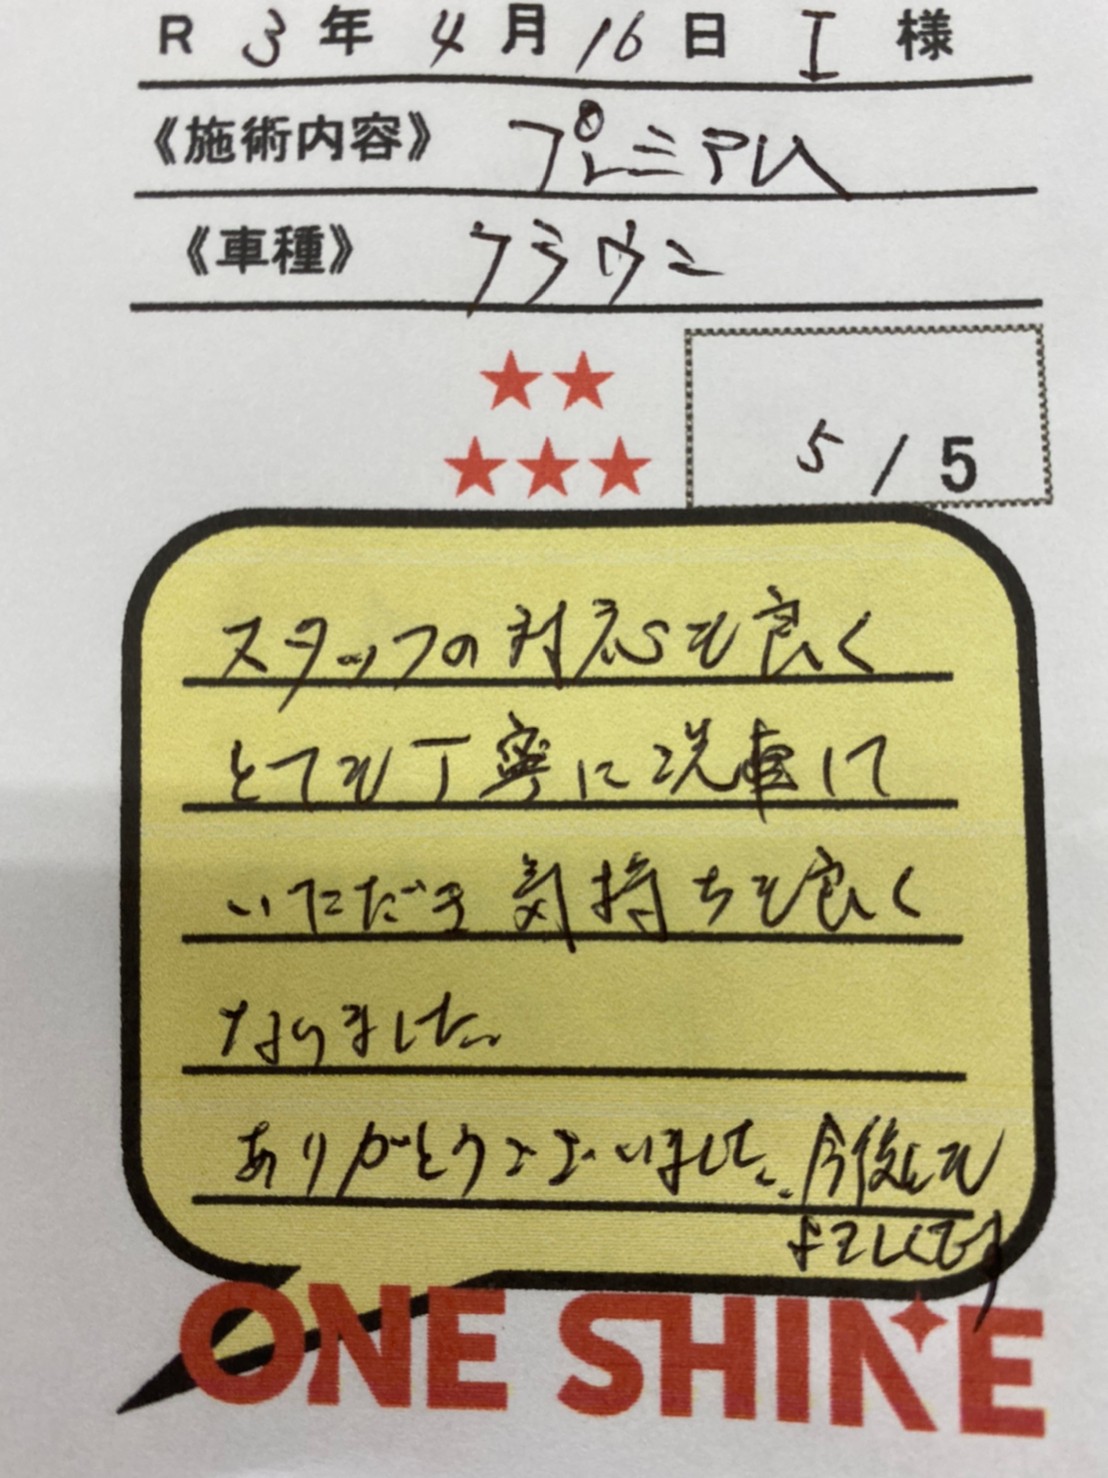 R 3年 4月 16日 I 様
《施術内容》 プレミアム
《車種》 クラウン
5/5
スタッフの対応も良く
とても丁寧に洗車して
いただき気持ちも良く
なりました。
ありがとうございました。今後とも
よろしくです
ONE SHINE